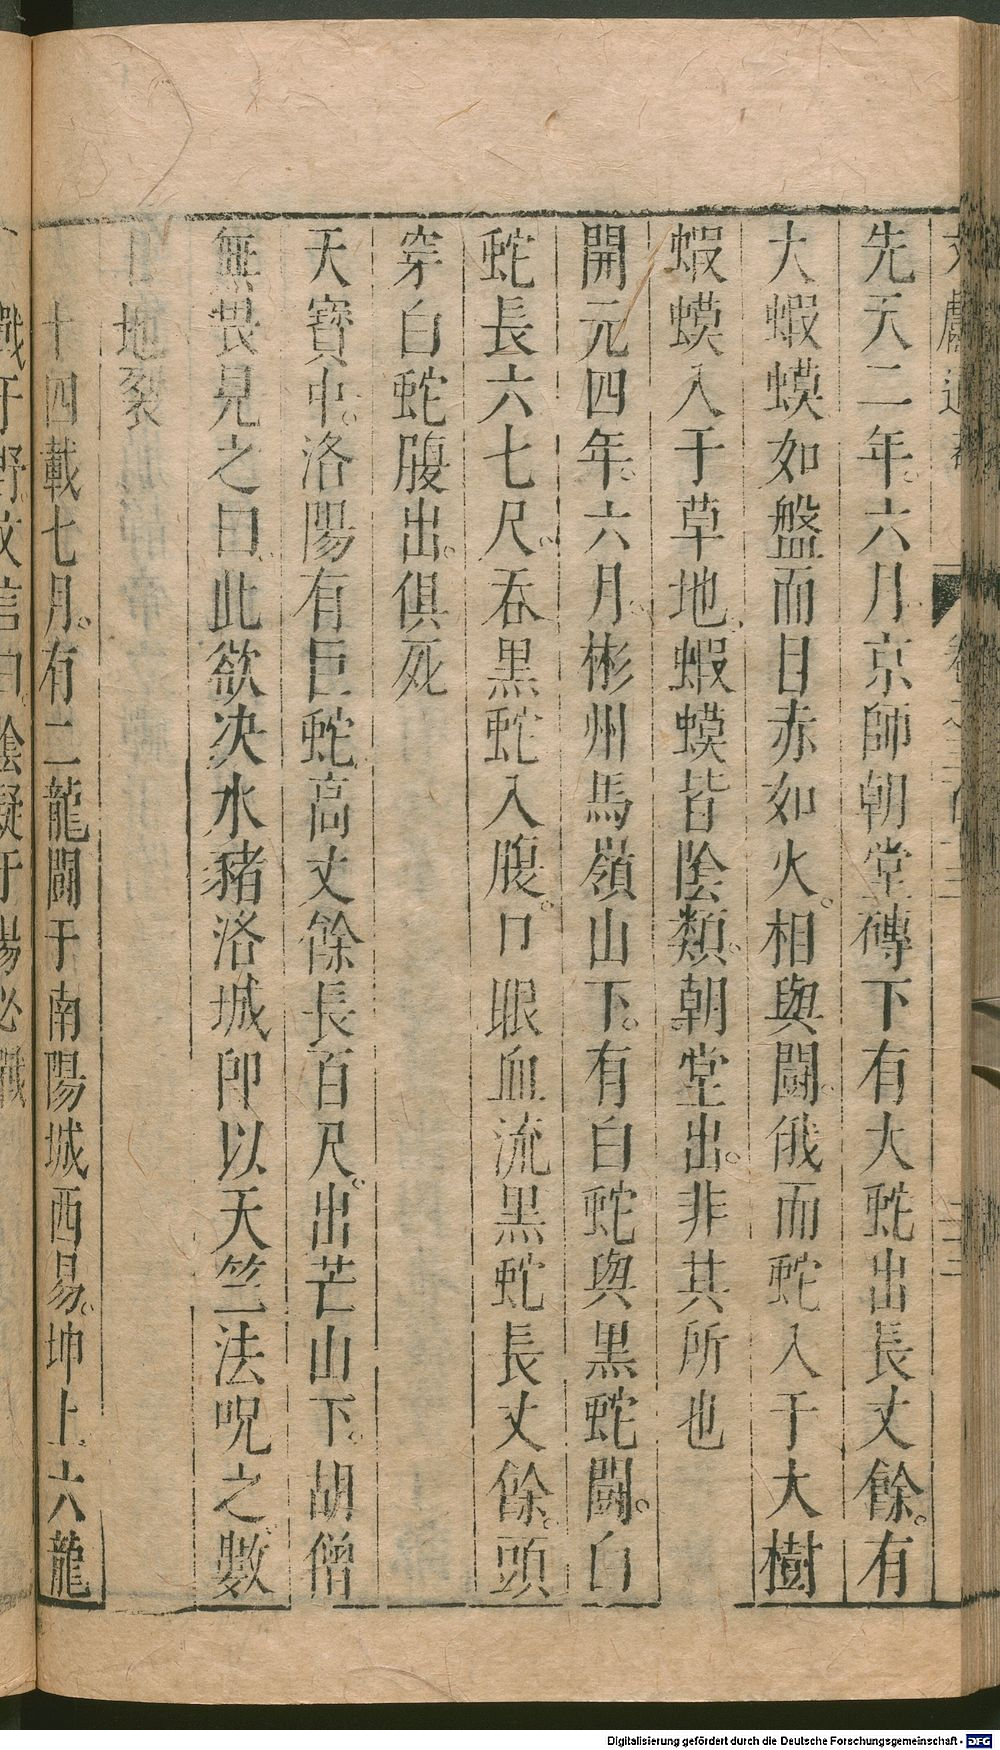 文獻通考 卷三百十三 二三
先天二年。六月京師朝堂磚下有大蛇出長丈餘。有
大蝦蟆如盤而目赤如火。相與鬪。俄而蛇入于大樹
蝦蟆入于草地。蝦蟆皆陰類。朝堂出。非其所也
開元四年。六月。彬州馬嶺山下。有白蛇與黑蛇鬪。白
蛇長六七尺。吞黑蛇入腹。口眼血流黑蛇長丈餘。頭
穿白蛇腹出。俱死
天寶中。洛陽有巨蛇高丈餘長百尺。出芒山下。胡僧
無畏見之曰。此欲决水豬洛城卽以天竺法呪之。數
日地裂
十四載七月。有二龍鬪于南陽城西易。坤上六龍
戰于野。文言曰。陰疑于陽必戰
Digitalisierung gefördert durch die Deutsche Forschungsgemeinschaft - DFG